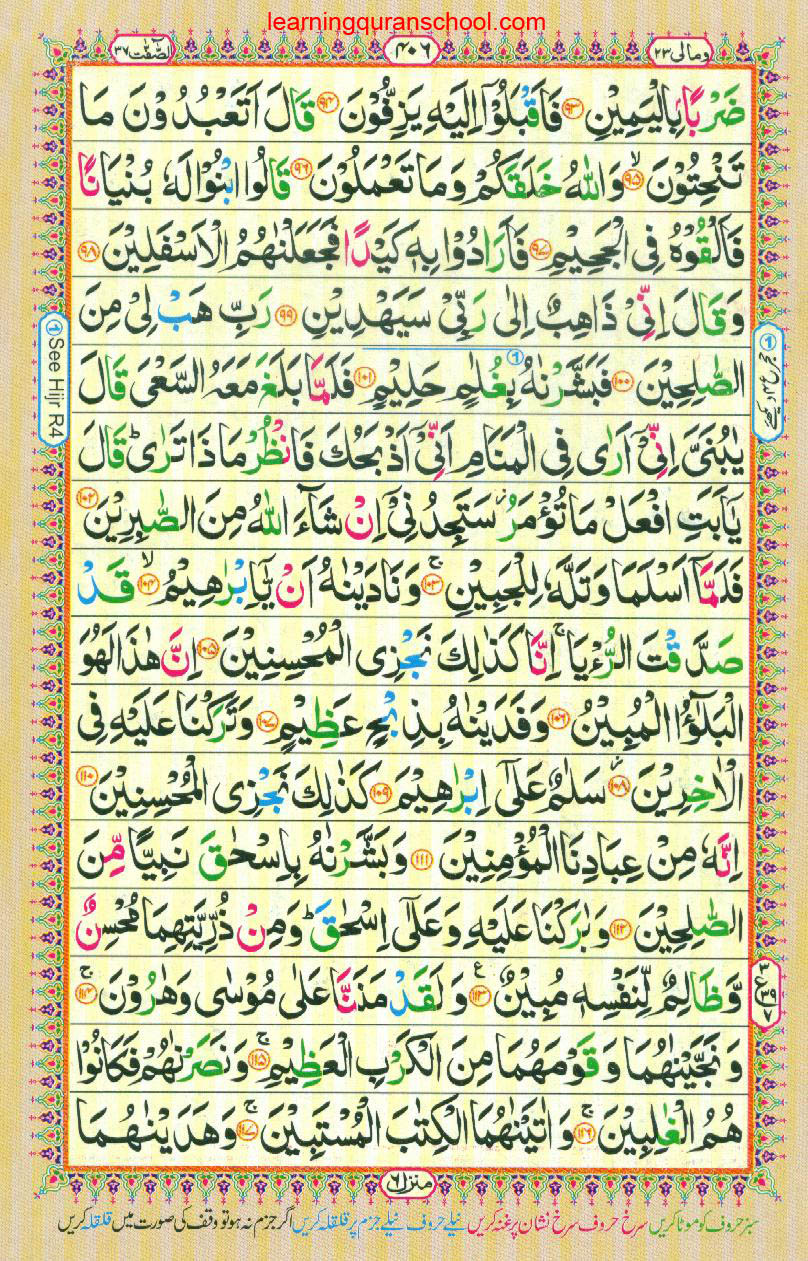 learningquranschool.com
وما لی ٢٣
٤٠٦
الصّٰفّٰت ٣٧
ضَرْبًۢا بِالْیَمِیْنِ ﴿٩٣﴾ فَاَقْبَلُوْۤا اِلَیْهِ یَزِفُّوْنَ ﴿٩٤﴾ قَالَ اَتَعْبُدُوْنَ مَا
تَنْحِتُوْنَ ۙ﴿٩٥﴾ وَاللّٰهُ خَلَقَكُمْ وَمَا تَعْمَلُوْنَ ﴿٩٦﴾ قَالُوا ابْنُوْا لَهٗ بُنْیَانًا
فَاَلْقُوْهُ فِی الْجَحِیْمِ ﴿٩٧﴾ فَاَرَادُوْا بِهٖ كَیْدًا فَجَعَلْنٰهُمُ الْاَسْفَلِیْنَ ﴿٩٨﴾
وَقَالَ اِنِّیْ ذَاهِبٌ اِلٰی رَبِّیْ سَیَهْدِیْنِ ﴿٩٩﴾ رَبِّ هَبْ لِیْ مِنَ
الصّٰلِحِیْنَ ﴿١٠٠﴾ فَبَشَّرْنٰهُ بِغُلٰمٍ حَلِیْمٍ ﴿١٠١﴾ فَلَمَّا بَلَغَ مَعَهُ السَّعْیَ قَالَ
یٰبُنَیَّ اِنِّیْۤ اَرٰی فِی الْمَنَامِ اَنِّیْۤ اَذْبَحُكَ فَانْظُرْ مَاذَا تَرٰی ؕ قَالَ
یٰۤاَبَتِ افْعَلْ مَا تُؤْمَرُ ؗ سَتَجِدُنِیْۤ اِنْ شَآءَ اللّٰهُ مِنَ الصّٰبِرِیْنَ ﴿١٠٢﴾
فَلَمَّاۤ اَسْلَمَا وَتَلَّهٗ لِلْجَبِیْنِ ۚ﴿١٠٣﴾ وَنَادَیْنٰهُ اَنْ یّٰۤاِبْرٰهِیْمُ ۙ﴿١٠٤﴾ قَدْ
صَدَّقْتَ الرُّءْیَا ۚ اِنَّا كَذٰلِكَ نَجْزِی الْمُحْسِنِیْنَ ﴿١٠٥﴾ اِنَّ هٰذَا لَهُوَ
الْبَلٰٓؤُا الْمُبِیْنُ ﴿١٠٦﴾ وَفَدَیْنٰهُ بِذِبْحٍ عَظِیْمٍ ﴿١٠٧﴾ وَتَرَكْنَا عَلَیْهِ فِی
الْاٰخِرِیْنَ ۖ﴿١٠٨﴾ سَلٰمٌ عَلٰۤی اِبْرٰهِیْمَ ﴿١٠٩﴾ كَذٰلِكَ نَجْزِی الْمُحْسِنِیْنَ ﴿١١٠﴾
اِنَّهٗ مِنْ عِبَادِنَا الْمُؤْمِنِیْنَ ﴿١١١﴾ وَبَشَّرْنٰهُ بِاِسْحٰقَ نَبِیًّا مِّنَ
الصّٰلِحِیْنَ ﴿١١٢﴾ وَبٰرَكْنَا عَلَیْهِ وَعَلٰۤی اِسْحٰقَ ؕ وَمِنْ ذُرِّیَّتِهِمَا مُحْسِنٌ
وَّظَالِمٌ لِّنَفْسِهٖ مُبِیْنٌ ﴿١١٣﴾ وَلَقَدْ مَنَنَّا عَلٰی مُوْسٰی وَهٰرُوْنَ ۚ﴿١١٤﴾
وَنَجَّیْنٰهُمَا وَقَوْمَهُمَا مِنَ الْكَرْبِ الْعَظِیْمِ ۚ﴿١١٥﴾ وَنَصَرْنٰهُمْ فَكَانُوْا
هُمُ الْغٰلِبِیْنَ ۚ﴿١١٦﴾ وَاٰتَیْنٰهُمَا الْكِتٰبَ الْمُسْتَبِیْنَ ۚ﴿١١٧﴾ وَهَدَیْنٰهُمَا
① See Hijr R4
منزل ٦
سبز حروف کو موٹا کریں سرخ حروف سرخ نشان پر غنہ کریں نیلے حروف نیلے جزم پر قلقلہ کریں اگر جزم نہ ہو تو وقف کی صورت میں قلقلہ کریں